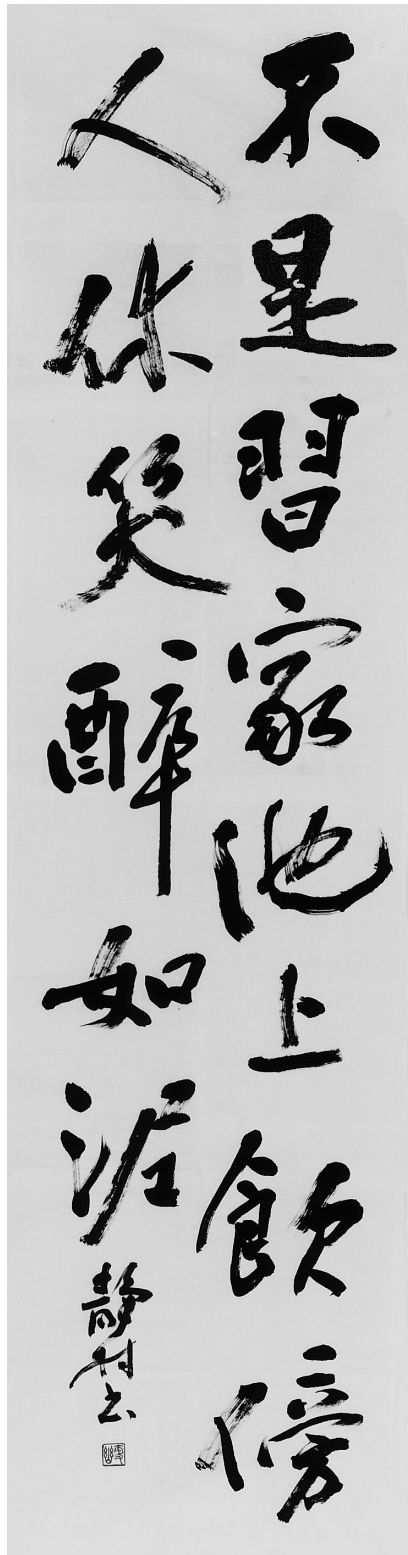 不是習家池上飲傍
人休笑醉如泥
靜村書